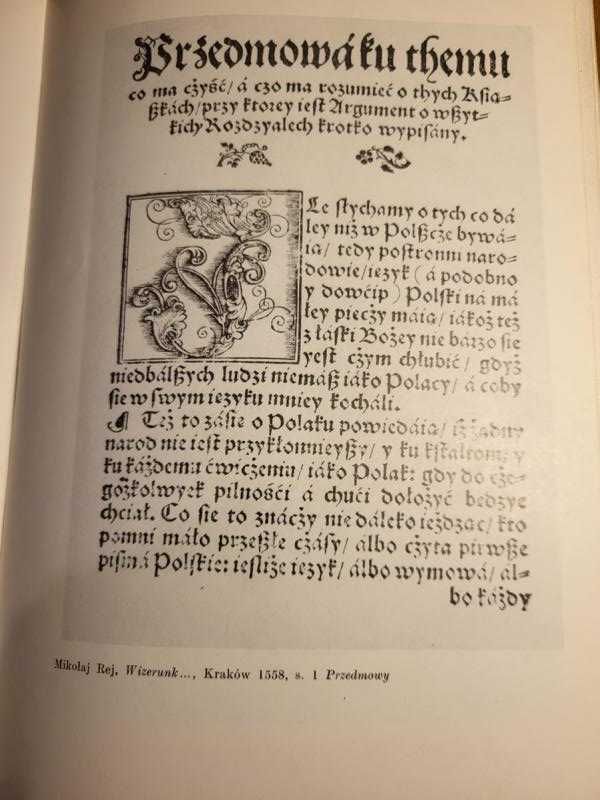 Przedmowá ku themu
co ma czyść/ á czo ma rozumieć o thych Ksią=
szkách/ przy ktorey iest Argument o wszyt=
kich Rozdzyalech krotko wypisány.
Ile słychamy o tych co dá
ley niż w Polszcze bywá=
ią/ tedy postronni naro=
dowie/ ięzyk ( á podobno
y dowćip ) Polski ná má
łey pieczy máią/ iákoż też
z łáski Bożey nie bárzo sie
yest czym chłubić/ gdyż
niedbálszych ludzi niemász iáko Polacy/ á coby
sie w swym ięzyku mniey kocháli.
¶ Też to zásie o Polaku powiedáią/ iż żadny
narod nie iest przykłonnieyszy/ y ku kształtom/ y
ku káżdemu ćwiczeniu/ iáko Polak: gdy do cze=
gożkolwyek pilnośći á chući dołożyć będzye
chciał. Co sie to znáczy niedáleko ieżdząc/ kto
pomni máło przeszłe czásy/ albo czyta pirwsze
pismá Polskie: iesliże ięzyk/ álbo wymowá/ ál=
bo każdy
Mikołaj Rej, Wizerunk..., Kraków 1558, s. 1 Przedmowy